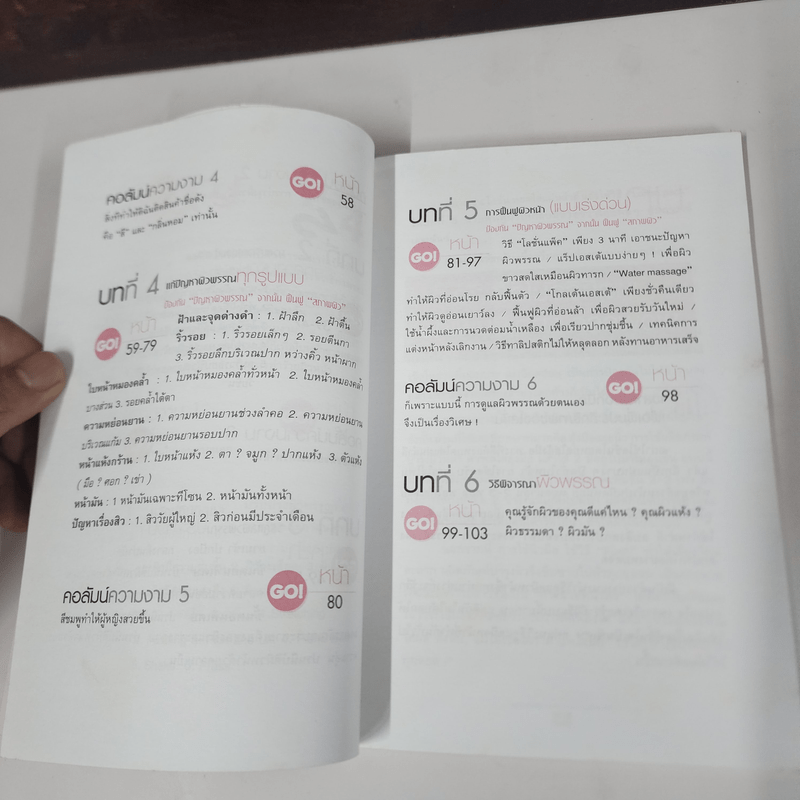 คอลัมน์ความงาม 4
สิ่งที่ทำให้ดิฉันติดสินค้าชื่อดัง
คือ "สี" และ "กลิ่นหอม" เท่านั้น
GO!
หน้า
58
บทที่ 4 แก้ปัญหาผิวพรรณทุกรูปแบบ
ป้องกัน "ปัญหาผิวพรรณ" จากนั้น ฟื้นฟู "สภาพผิว"
GO!
หน้า
59-79
ฝ้าและจุดด่างดำ : 1. ฝ้าลึก 2. ฝ้าตื้น
ริ้วรอย : 1. ริ้วรอยเล็กๆ 2. รอยตีนกา
3. ริ้วรอยลึกบริเวณปาก หว่างคิ้ว หน้าผาก
ใบหน้าหมองคล้ำ : 1. ใบหน้าหมองคล้ำทั่วหน้า 2. ใบหน้าหมองคล้ำ
บางส่วน 3. รอยคล้ำใต้ตา
ความหย่อนยาน : 1. ความหย่อนยานช่วงลำคอ 2. ความหย่อนยาน
บริเวณแก้ม 3. ความหย่อนยานรอบปาก
หน้าแห้งกร้าน : 1. ใบหน้าแห้ง 2. ตา ? จมูก ? ปากแห้ง 3. ตัวแห้ง
( มือ ? ศอก ? เข่า )
หน้ามัน : 1 หน้ามันเฉพาะทีโซน 2. หน้ามันทั้งหน้า
ปัญหาเรื่องสิว : 1. สิววัยผู้ใหญ่ 2. สิวก่อนมีประจำเดือน
คอลัมน์ความงาม 5
สีชมพูทำให้ผู้หญิงสวยขึ้น
GO!
หน้า
80
บทที่ 5 การฟื้นฟูผิวหน้า (แบบเร่งด่วน)
ป้องกัน "ปัญหาผิวพรรณ" จากนั้น ฟื้นฟู "สภาพผิว"
GO!
หน้า
81-97
วิธี "โลชั่นแพ็ค" เพียง 3 นาที เอาชนะปัญหา
ผิวพรรณ / แร็ปเอสเต้แบบง่ายๆ ! เพื่อผิว
ขาวสดใสเหมือนผิวทารก / "Water massage"
ทำให้ผิวที่อ่อนโรย กลับฟื้นตัว / "โกลเด้นเอสเต้" เพียงชั่วคืนเดียว
ทำให้ผิวดูอ่อนเยาว์ลง / ฟื้นฟูผิวที่อ่อนล้า เพื่อผิวสวยรับวันใหม่ /
ใช้น้ำผึ้งและการนวดต่อมน้ำเหลือง เพื่อเรียวปากชุ่มชื้น / เทคนิคการ
แต่งหน้าหลังเลิกงาน / วิธีทาลิปสติกไม่ให้หลุดลอก หลังทานอาหารเสร็จ
คอลัมน์ความงาม 6
ก็เพราะแบบนี้ การดูแลผิวพรรณด้วยตนเอง
จึงเป็นเรื่องวิเศษ !
GO!
หน้า
98
บทที่ 6 วิธีพิจารณาผิวพรรณ
GO!
หน้า
99-103
คุณรู้จักผิวของคุณดีแค่ไหน ? คุณผิวแห้ง ?
ผิวธรรมดา ? ผิวมัน ?